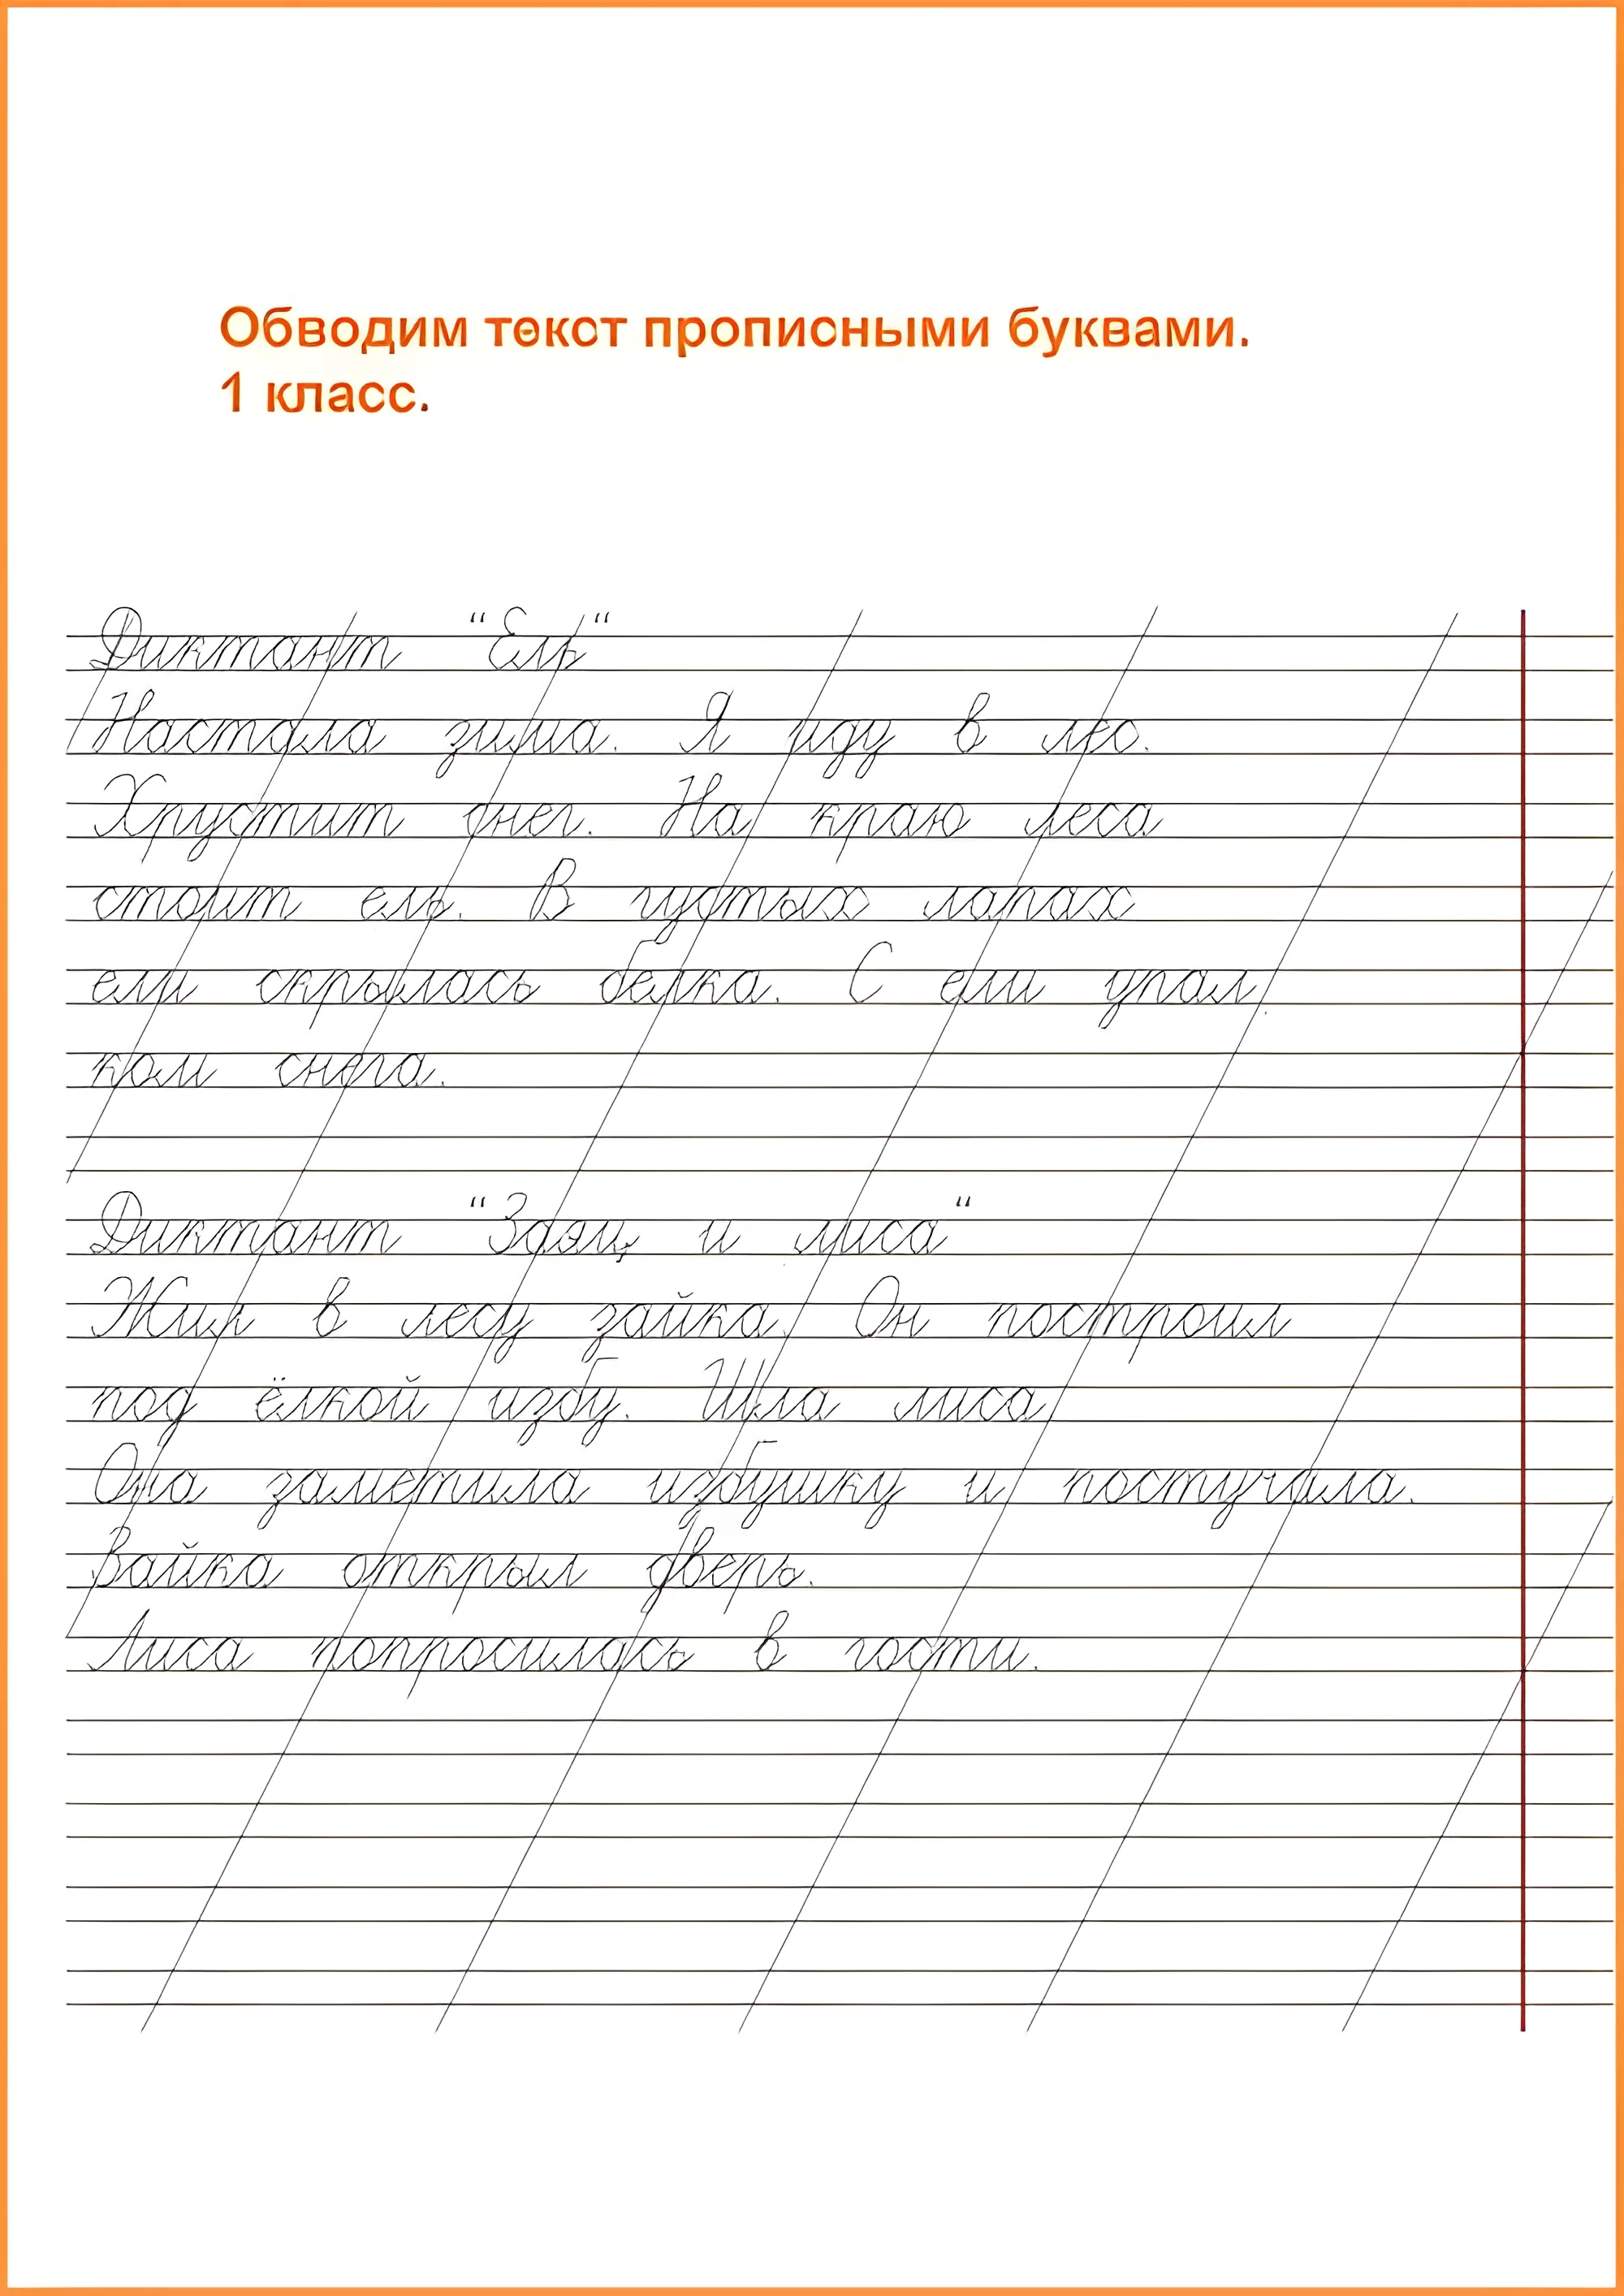 Обводим текст прописными буквами.
1 класс.
Диктант "Ель"
Настала зима. Я иду в лес.
Хрустит снег. На краю леса
стоит ель. В густых лапах
ели скрылась белка. С ели упал
ком снега.
Диктант "Заяц и лиса"
Жил в лесу зайка. Он построил
под ёлкой избу. Шла лиса.
Она заметила избушку и постучала.
Зайка открыл дверь.
Лиса попросилась в гости.